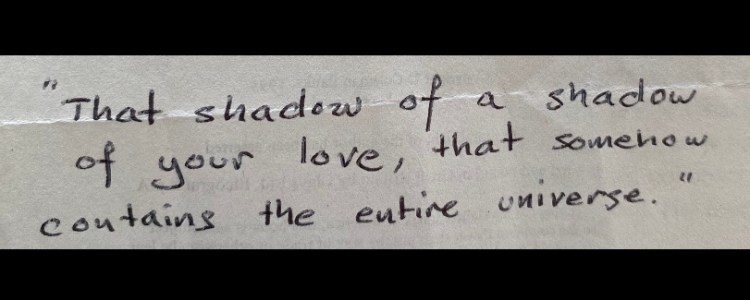 "That shadow of a shadow
of your love, that somehow
contains the entire universe."